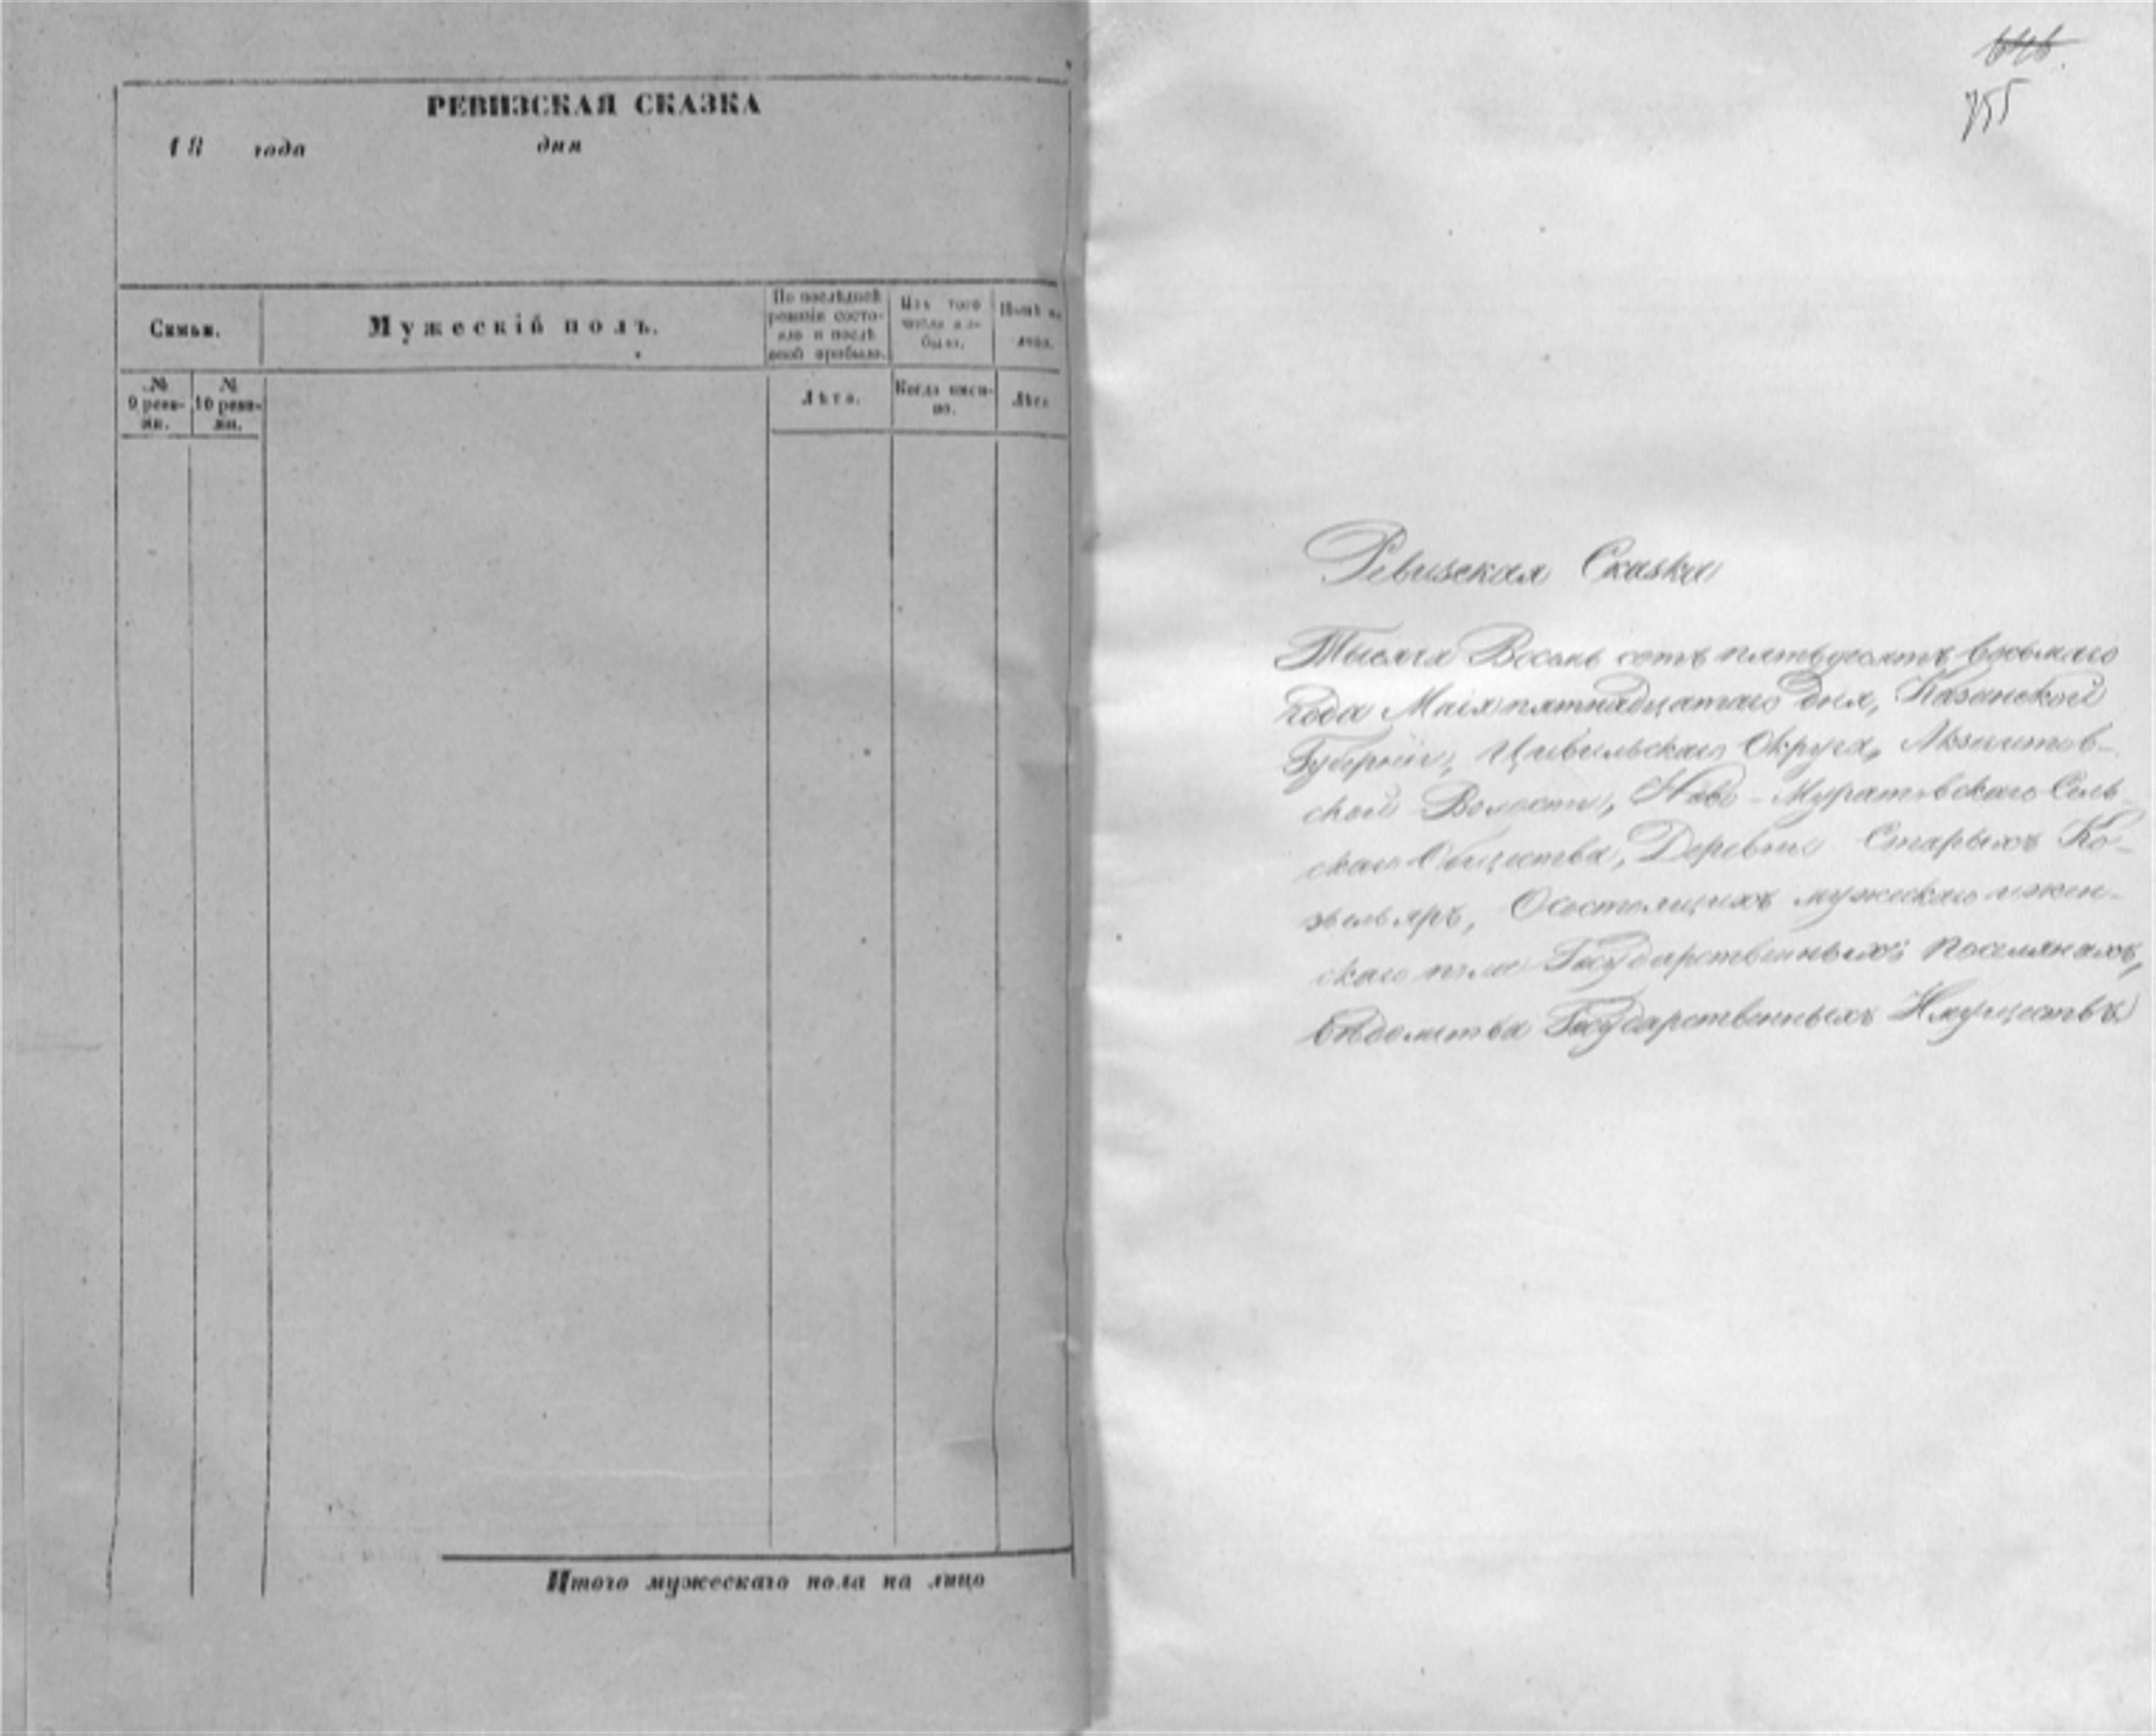 РЕВИЗСКАЯ СКАЗКА
18 года дня
Семьи.
Мужескій полъ.
По послѣдней
ревизіи состо-
яло и послѣ
оной прибыло.
Изъ того
числа вы-
было.
Нынѣ на
лицо.
№
9 реви-
зіи.
№
10 реви-
зіи.
Лѣта.
Когда имен-
но.
Лѣта
Итого мужескаго пола на лицо
755
Ревизская Сказка
Тысяча Восемь сотъ пятьдесятъ восьмаго
года Маія пятнадцатаго дня, Казанской
Губерніи, Цивильскаго Округа, Акзегитов-
ской Волости, Ново-Муратовскаго Сель-
скаго Общества, Деревни Старыхъ Ко-
зьельяръ, О состоящихъ мужескаго и жен-
скаго пола Государственныхъ поселянахъ,
вѣдомства Государственныхъ Имуществъ